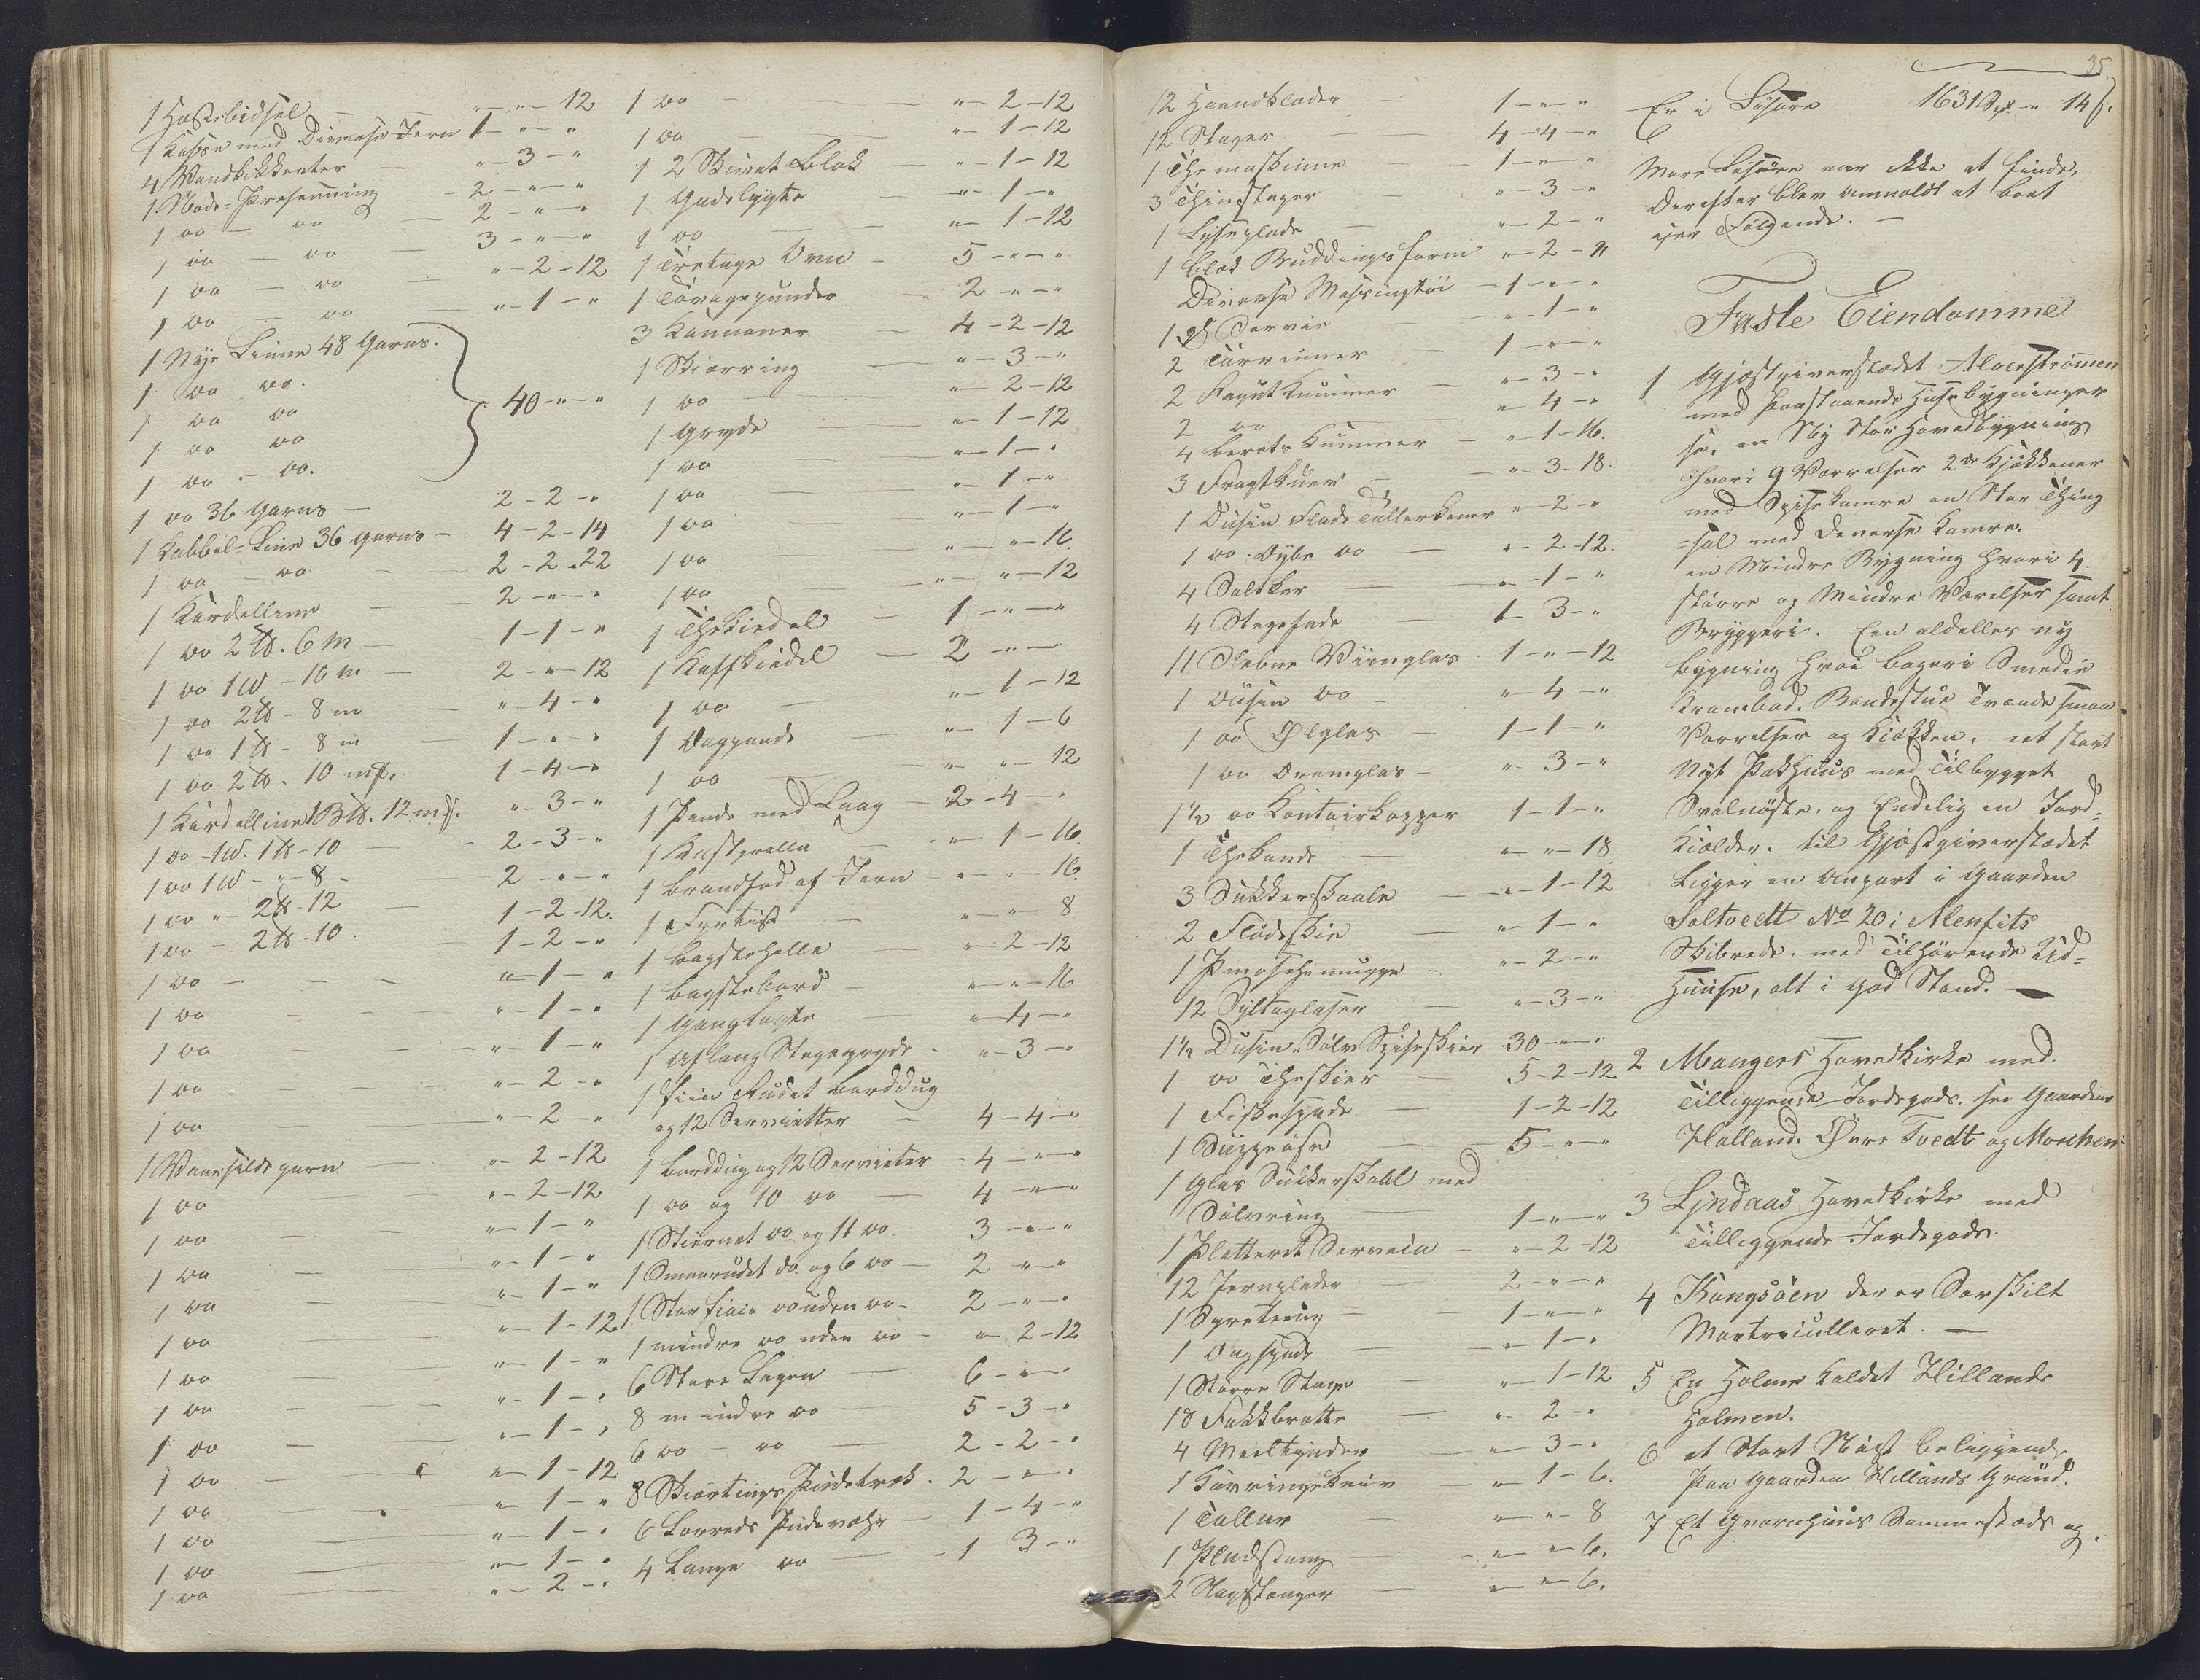 1 Hostebidsel " - " - 12
1 Kasse med Diverse Jern 1 - " - "
4 Vand " - 3 - "
1 Node-Presenning 2 - " - "
1 do - do 2 - " - "
1 do - do 3 - " - "
1 do - do " - 2 - 12
1 do - do " - 1 - "
1 Nye Linne 48 Garns.
1 do do.
1 do do 40 - " - "
1 do do
1 do - do.
1 do 36 Garns - 2 - 2 - "
1 Kabbel-Line 36 garns - 4 - 2 - 14
1 do - do 2 - 2 - 22
1 Kardelline 2 - " - "
1 do 2 ℔. 6 m 1 - 1 - "
1 do 1 W - 16 m 2 - " - 12
1 do 2 ℔ - 8 m " - 4 - "
1 do 1 ℔ - 8 m 1 - " - "
1 do 2 ℔. 10 mk. 1 - 4 - "
1 Kardelline 1 B ℔. 12 mk. " - 3 - "
1 do - 1 W. 1 ℔ - 10 2 - 3 - "
1 do 1 W - " - 8 - 2 - " - "
1 do " - 2 ℔ - 12 1 - 2 - 12.
1 do - 2 ℔ - 10. 1 - 2 - "
1 do " - 1 - "
1 do " - 1 - "
1 do " - 1 - "
1 do " - 2 - "
1 do " - 2 - "
1 Vaarsildgarn " - 2 - 12
1 do " - 2 - 12
1 do " - 1 - "
1 do " - 1 - "
1 do " - 1 - "
1 do " - 1 - 12
1 do " - 1 - "
1 do " - 1 - "
1 do " - 1 - "
1 do " - 1 - 12
1 do " - 1 - "
1 do " - 1 - "
1 do " - 1 - "
1 do " - 2 - "
1 do " - 2 - 12
1 do " - 1 - 12
1 2 Skivet Blok " - 1 - 12
1 Gadelygte " - 1 - "
1 do " - 1 - 12
1 Tretage Ovn 5 - " - "
1 2 - " - "
3 Kannoner 4 - 2 - 12
1 Skiørring " - 3 - "
1 do " - 2 - 12
1 Gryde " - 1 - 12
1 do " - 1 - "
1 do " - 1 - "
1 do " - 1 - "
1 do " - " - 16.
1 do " - " - 12
1 Thekiedel 1 - " - "
1 Kaffkiedel 2 - " -
1 do " - 1 - 12
1 " - 1 - 6
1 do " - " - 12
1 Pande med Laag 2 - 4 - "
1 " - 1 - 16.
1 Brandfod af Jern " - " - 16
1 Fyrtøi " - " - 8
1 Bagstehelle " - 2 - 12
1 Bagstebord " - " - 16
1 Ganglogte " - 4 - "
1 Aflang Stegegryde " - 3 - "
1 fiin Rudet Borddug
og 12 Servietter 4 - 4 - "
1 Borddug og 12 Servieter - 4 - " - "
1 do og 10 do 4 - " - "
1 Stiernet do og 11 do. 3 - " - "
1 Smaarudet do. og 6 do 2 - " - "
1 Stor do uden do. 2 - " - "
1 mindre do uden do " - 2 - 12
6 Store Lagen 6 - " -
8 mindre do 5 - 3 - "
6 do - do 2 - 2 - "
8 Skiortings Pudetræk. 2 - " - "
6 Lerreds Pudevahr 1 - 4 - "
4 Lange do - 1 3 - "
35
12 Haandklæder 1 - " - "
12 Stager 4 - 4 - "
1 The maskinne 1 - " - "
3 Thinstager " - 3 - "
1 Lyseplade " - 2 - "
1 Blek Buddingsform " - 2 - "
Diverse Messingtøi - 1 - " - "
1 Servis " - 1 - "
2 Tarrinner 1 - " - "
2 Ragut Kummer " - 3 - "
2 do " - 4 - "
4 Kummer " - 1 - 16.
3 " - 3 - 18.
1 Dusin Flade Tallerkener " - 2 - "
1 do. Dybe do " - 2 - 12.
4 Saltkar " - 1 - "
4 Stegefade 1 - 3 - "
11 Slebne Viinglas 1 - " - 12
1 Dusin do " - 4 - "
1 do Ølglas 1 - 1 - "
1 do Dramglas " - 3 - "
1½ do Kontoirkopper 1 - 1 - "
1 Thekande " - " - 18
3 Sukkerskaale " - 1 - 12
2 Flødeskie " - 1 - "
1 " - 2 - "
12 Syltaglaser " - 3 - "
1½ Dusin Sølv Spiseskier 30 - " - "
1 do Theskier 5 - 2 - 12
1 Fiskespade 1 - 2 - 12
1 Suppeøse 5 - " - "
1 Glas Sukkerskaal med
Sølvring 1 - " - "
1 Pletteret Servein " - 2 - 12
12 Jernplader 2 - " - "
1 1 - " - "
1 " - 1 - "
1 Større Stampe " - 1 - 12
18 Fadkbrotte " - 2 - "
4 Meeltynder " - 3 - "
1 Kavringekniv " - 1 - 6.
1 " - " - 8
1 " - " - 6.
2 " - " - 6.
Er i Løsøre 1631 Spd - " 14 s.
Mere Løsøre var ikke at finde,
Derefter blev anmeldt at boet
ejer Følgende. -
Faste Eiendomme
1 Gjæstgiverstædet Alverstrømen
med paastaaende Husebygninger
en Ny Stor Hovedbygning
hvori 9 Værelser 2de Kjøkkener
med Spisekamre en Stor Thing
=sal med deverse Kamre.
en Mindre Bygning hvori 4.
større og Mindre Værelser samt
Bryggeri. Een aldelles ny
bygning hvori Bageri Smedie
Krambod. Bondestue Tvende smaa
Værelser og Kiøkken. eet stort
Nyt Pakhuus med Tilbygget
og Endelig en Jord=
Kielder. til Gjæstgiverstædet
Ligger en Anpart i Gaarden
Soltvedt No 20 i Alenfits
Skibrede. med Tilhørende Ud=
Huuse, alt i god Stand. -
2 Mangers Hovedkirke med
Tilliggende Jordegods. Gaarden
Halland. Øvre Tvedt og
3 Lyndaas Hovedkirke med
Tilliggende Jordegods.
4 Kongsøen der er Særskilt
Martriculleret. -
5 En Holme kaldet Hillands
Holmen.
6 et Stort Nøst beliggende
paa Gaarden Hillands Grund.
7 Et Qværnhuus Sammesteds og.